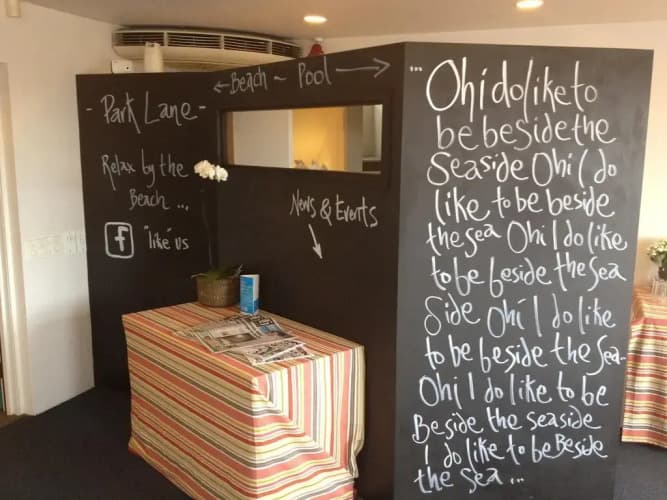 - Park Lane -
Relax by the
Beach ...
f "like" us
← Beach ~ Pool →
News & Events
... Oh i do like to
be beside the
Seaside Oh i / do
like to be beside
the sea Oh i I do like
to be beside the Sea
Side Oh i I do like
to be beside the Sea -
Oh i I do like to be
Beside the seaside
I do like to be Beside
the Sea ...